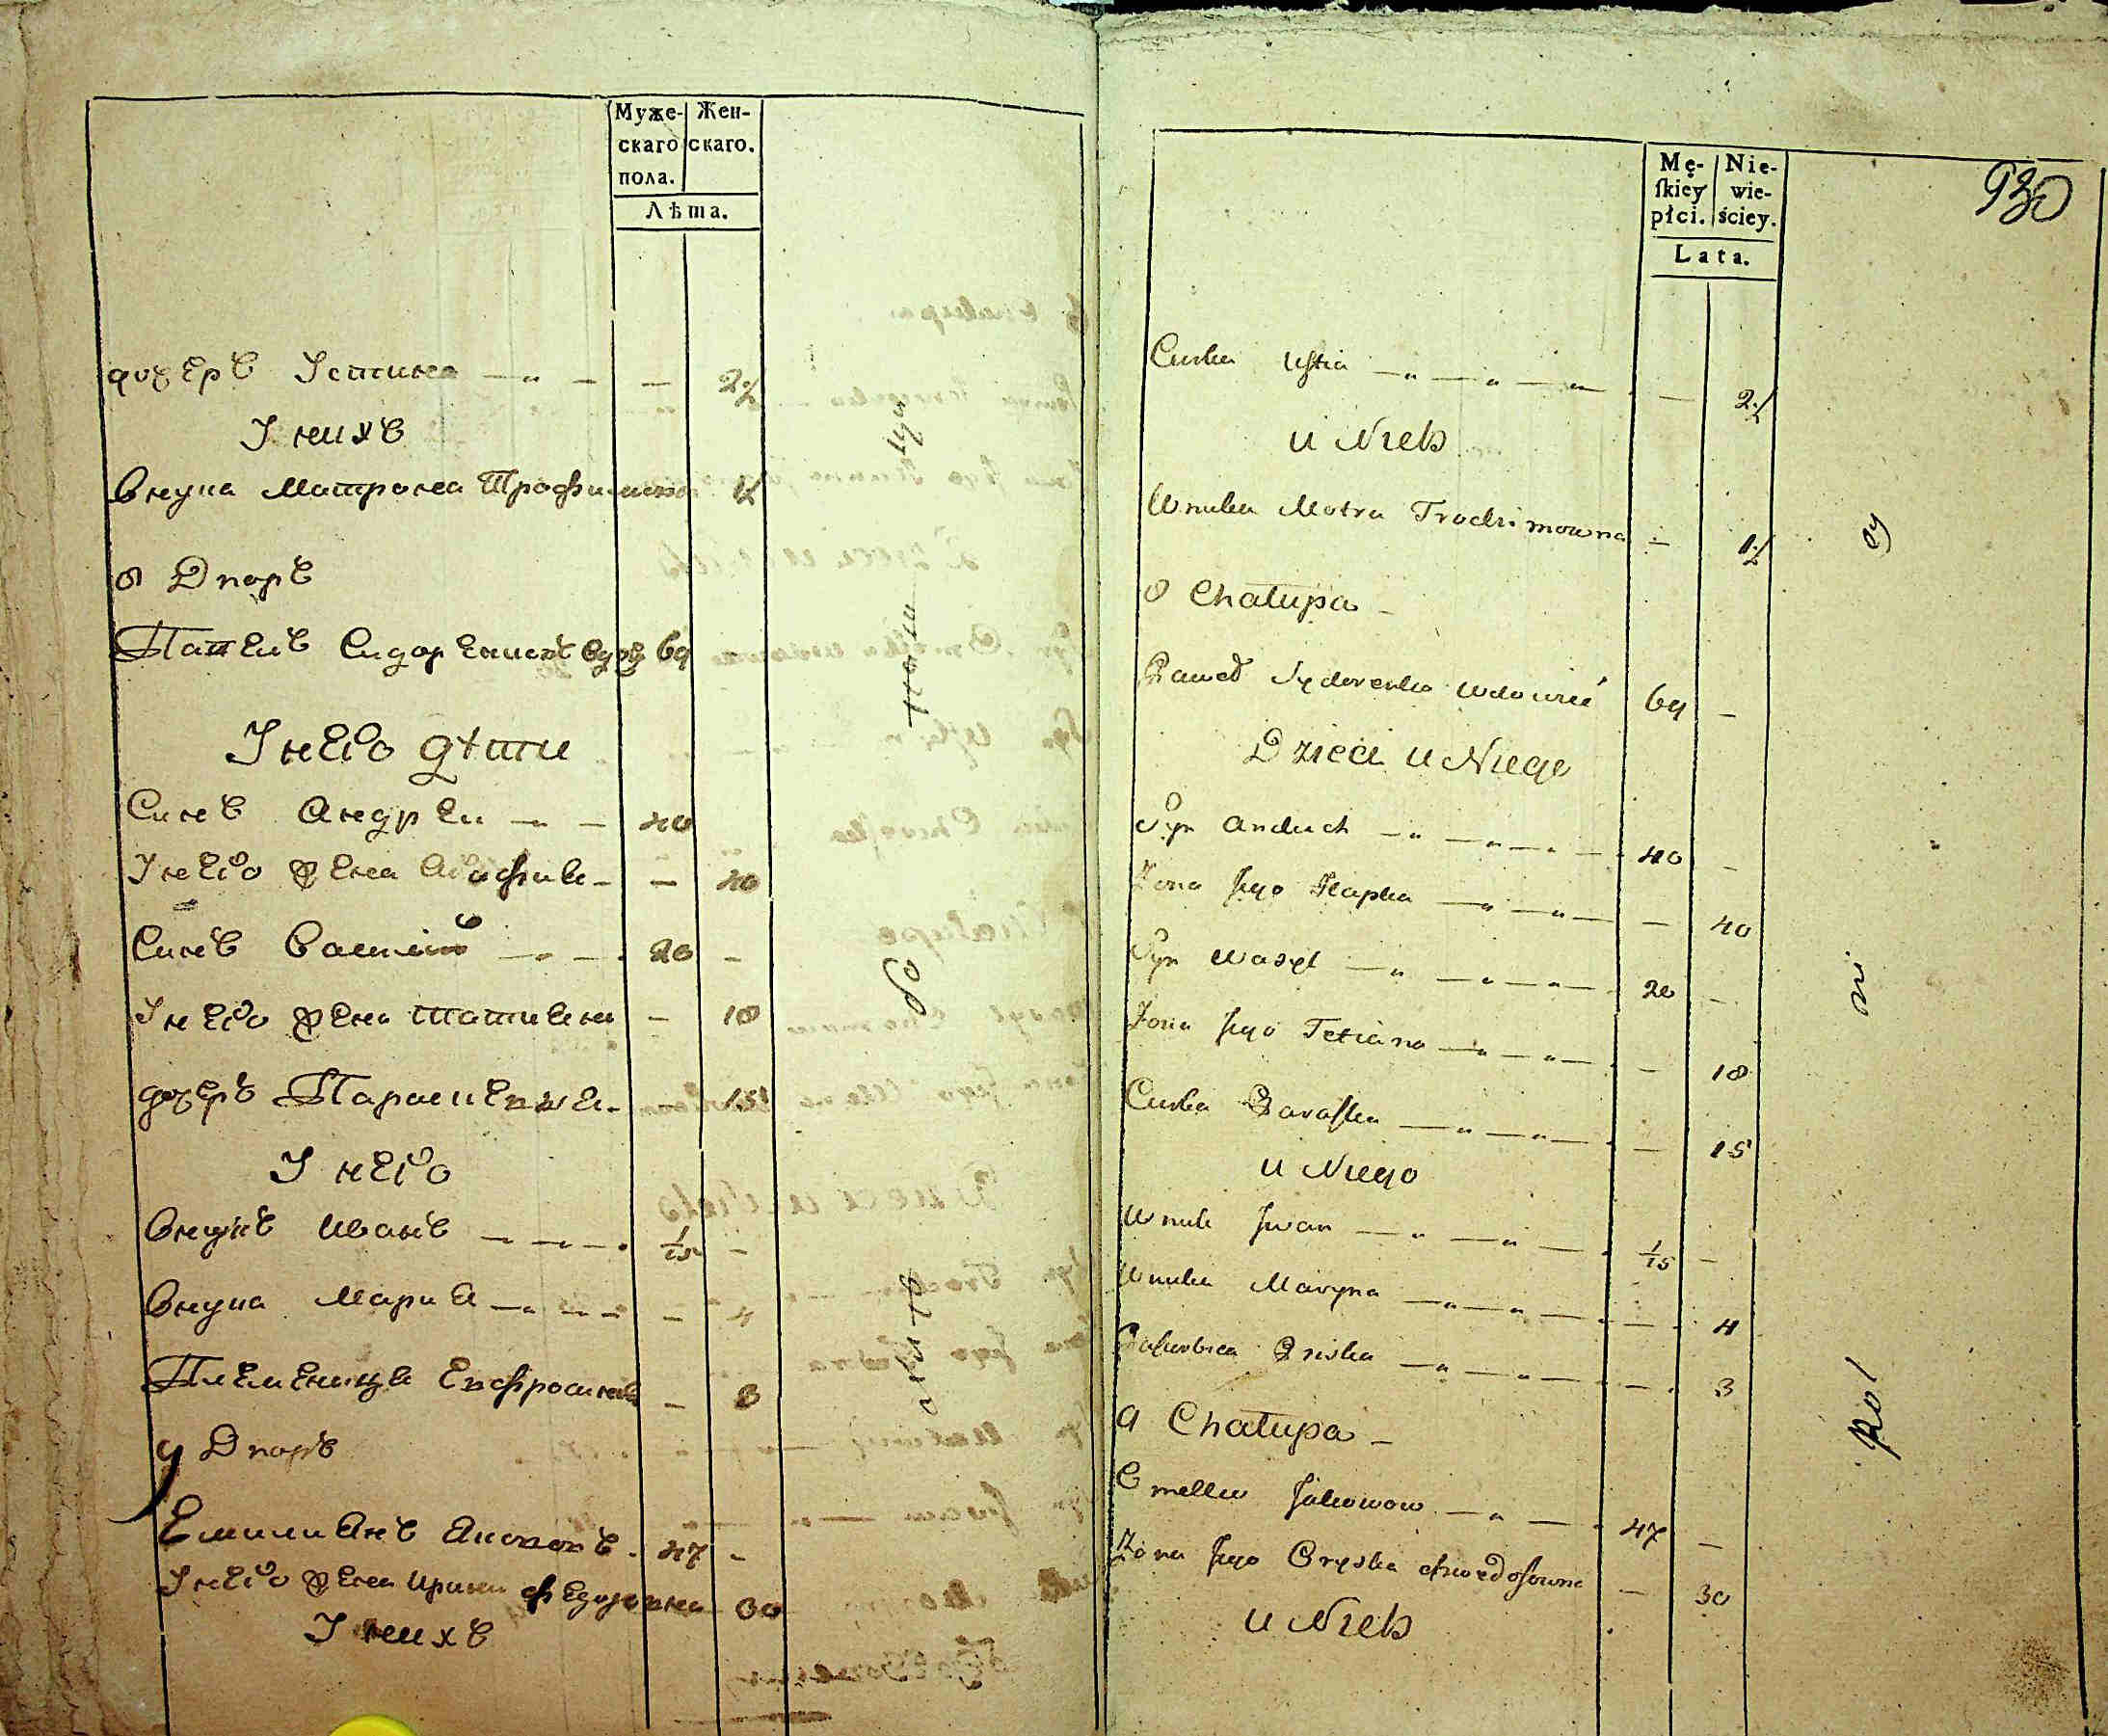 Муже-
скаго
пола.
Жен-
скаго.
Лѣта.
дочеръ Устина — 2½
У нихъ
Внука Матрона Трофимова 1½
8 Дворъ
Павелъ Сидоренковъ вдовъ 69
У него дѣти
Синъ Андрей 40
У него жена Агафия 40
Синъ Василий 20
У него жена Татияна 18
дочеръ Парасцевия 15
У него
Внукъ Иванъ 1/15
Внука Мария 4
Племеница Евфросиния 3
9 Дворъ
Емилиянъ Якововъ 47
У него жена Ирина Федосовна 30
У нихъ
930
Mę-
skiey
płci.
Nie-
wie-
ściey.
Lata.
Curka Ustia 2½
u Nich
Wnuka Motra Trochimowna 1½
8 Chałupa
Paweł Sydorenko wdowiec 69
Dzieci u Niego
Syn Andruch 40
Żona Jego Hapka 40
Syn Wasyl 20
Żona Jego Tetiana 18
Curka Paraska 15
u Niego
Wnuk Jwan 1/15
Wnuka Maryna 4
Priska 3
9 Chałupa
Omelko Jakowow 47
Żona Jego Oryszka Chwedosowna 30
u Nich